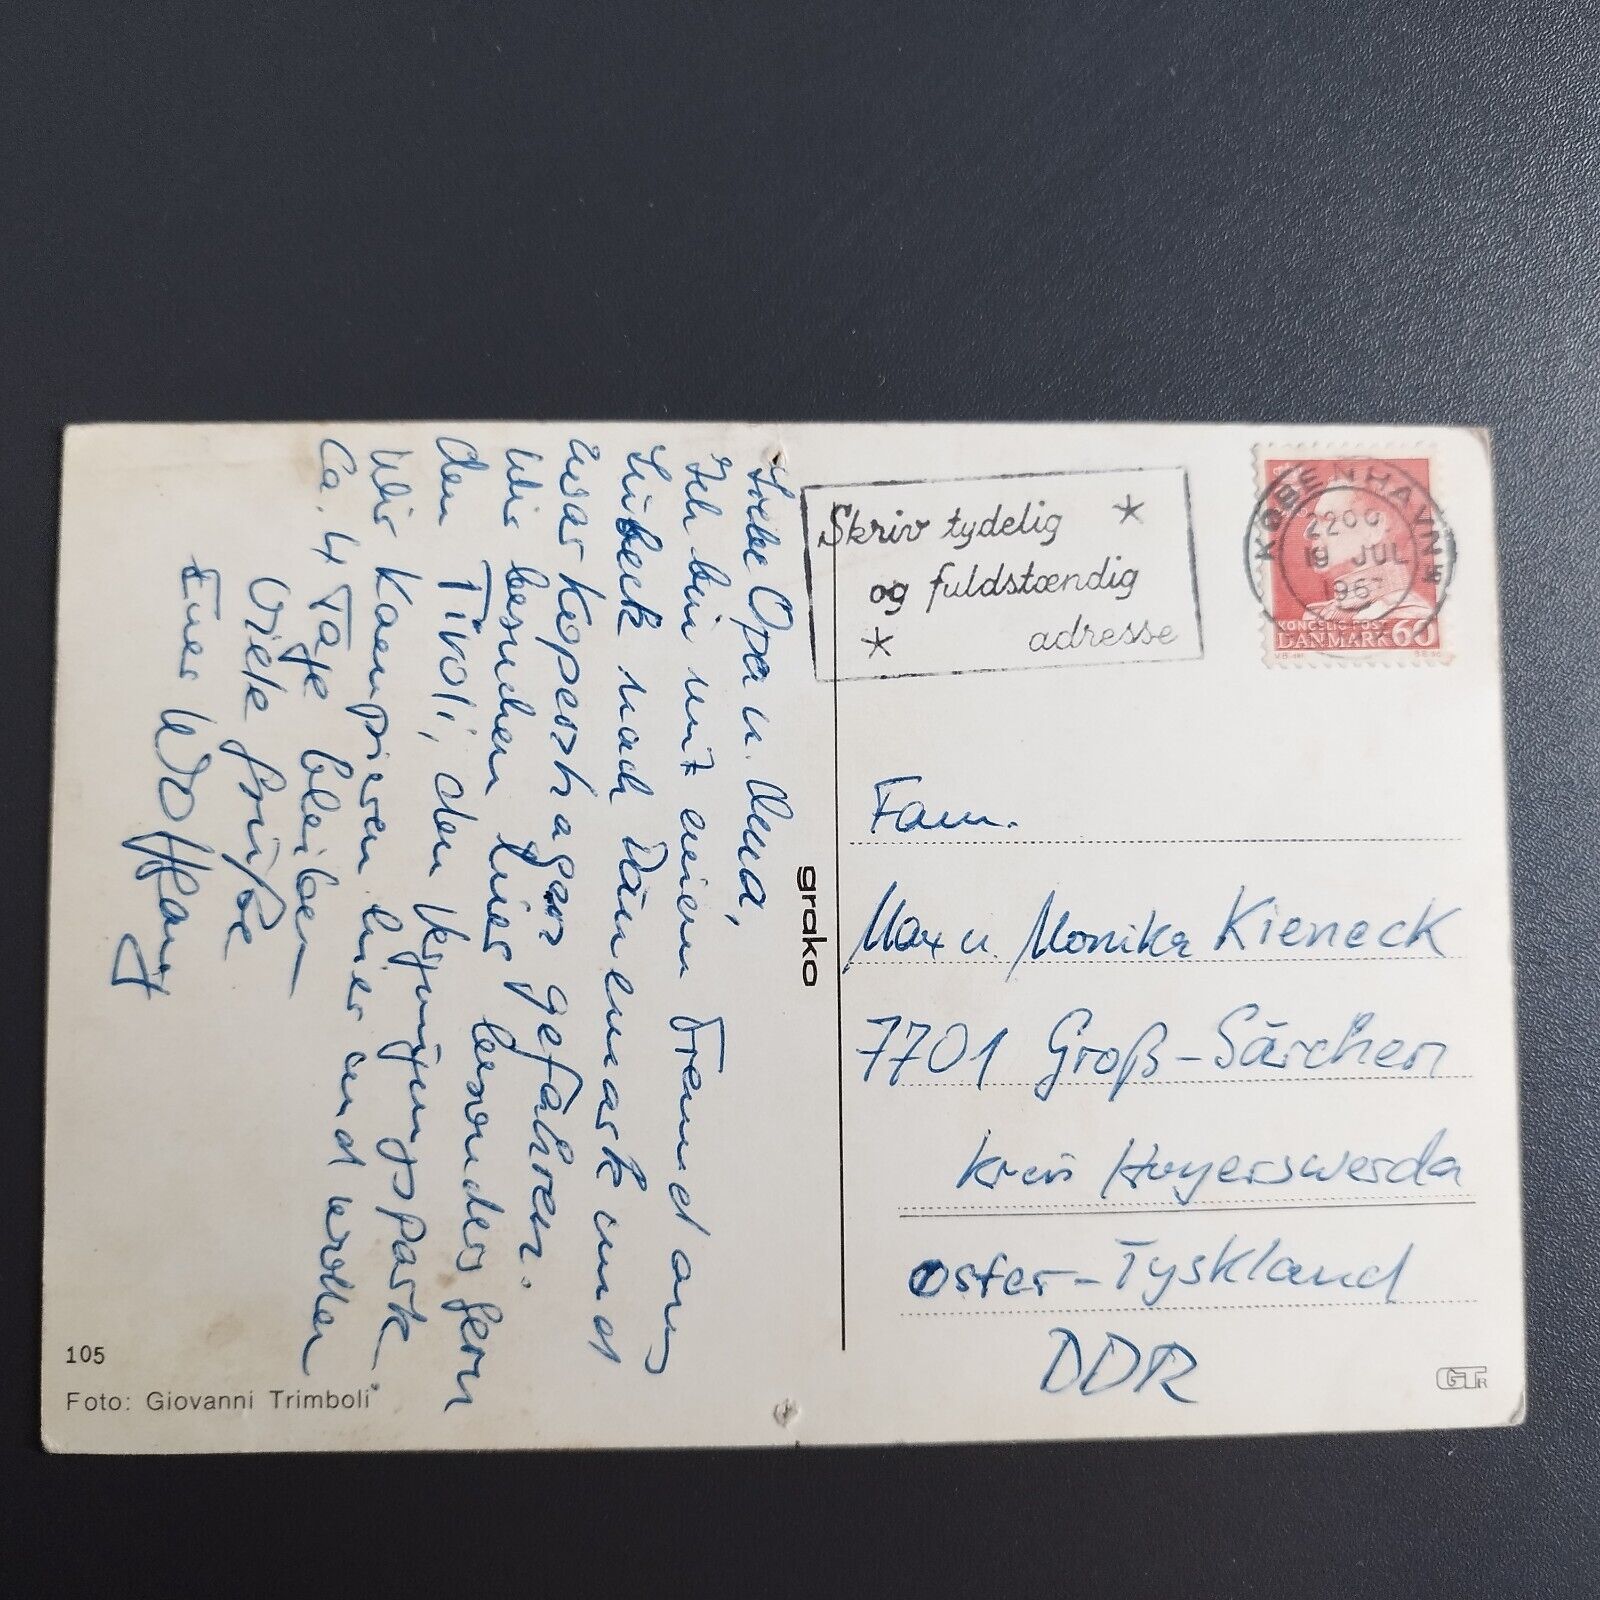 Liebe Opa u. Oma,
Ich bin mit einem Freund aus
Lübeck nach Dänemark und
zwar Kopenhagen gefahren.
Wir besuchen hier besonders gern
den Tivoli, den Vergnügungspark
Wir kampieren hier und wollen
Ca. 4 Tage bleiben
Viele Grüße
Euer Wolfgang
105
Foto: Giovanni Trimboli
grako
Skriv tydelig
og fuldstændig
adresse
KØBENHAVN
19 JUL
KONGELIG POST
DANMARK 60
Fam.
Max u. Monika Kieneck
7701 Groß-Särchen
Kreis Hoyerswerda
Oster-Tyskland
DDR